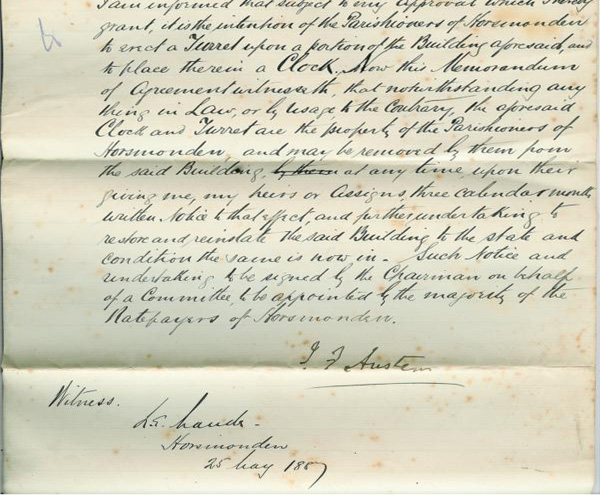 I am informed that subject to my approval which I hereby
grant, it is the intention of the Parishioners of Horsmonden
to erect a Turret upon a portion of the Building aforesaid, and
to place therein a Clock. Now this Memorandum
of Agreement witnesseth, that notwithstanding any
thing in Law, or by usage to the Contrary, the aforesaid
Clock and Turret are the property of the Parishioners of
Horsmonden, and may be removed by them from
the said Building, by them at any time, upon their
giving me, my heirs or Assigns, three calendar months
written Notice to that effect, and further undertaking to
restore and reinstate the said Building to the state and
condition the same is now in. Such Notice and
undertaking to be signed by the Chairman on behalf
of a Committee, to be appointed by the majority of the
Ratepayers of Horsmonden.
J F Austen
Witness.
Horsmonden
25 May 1887